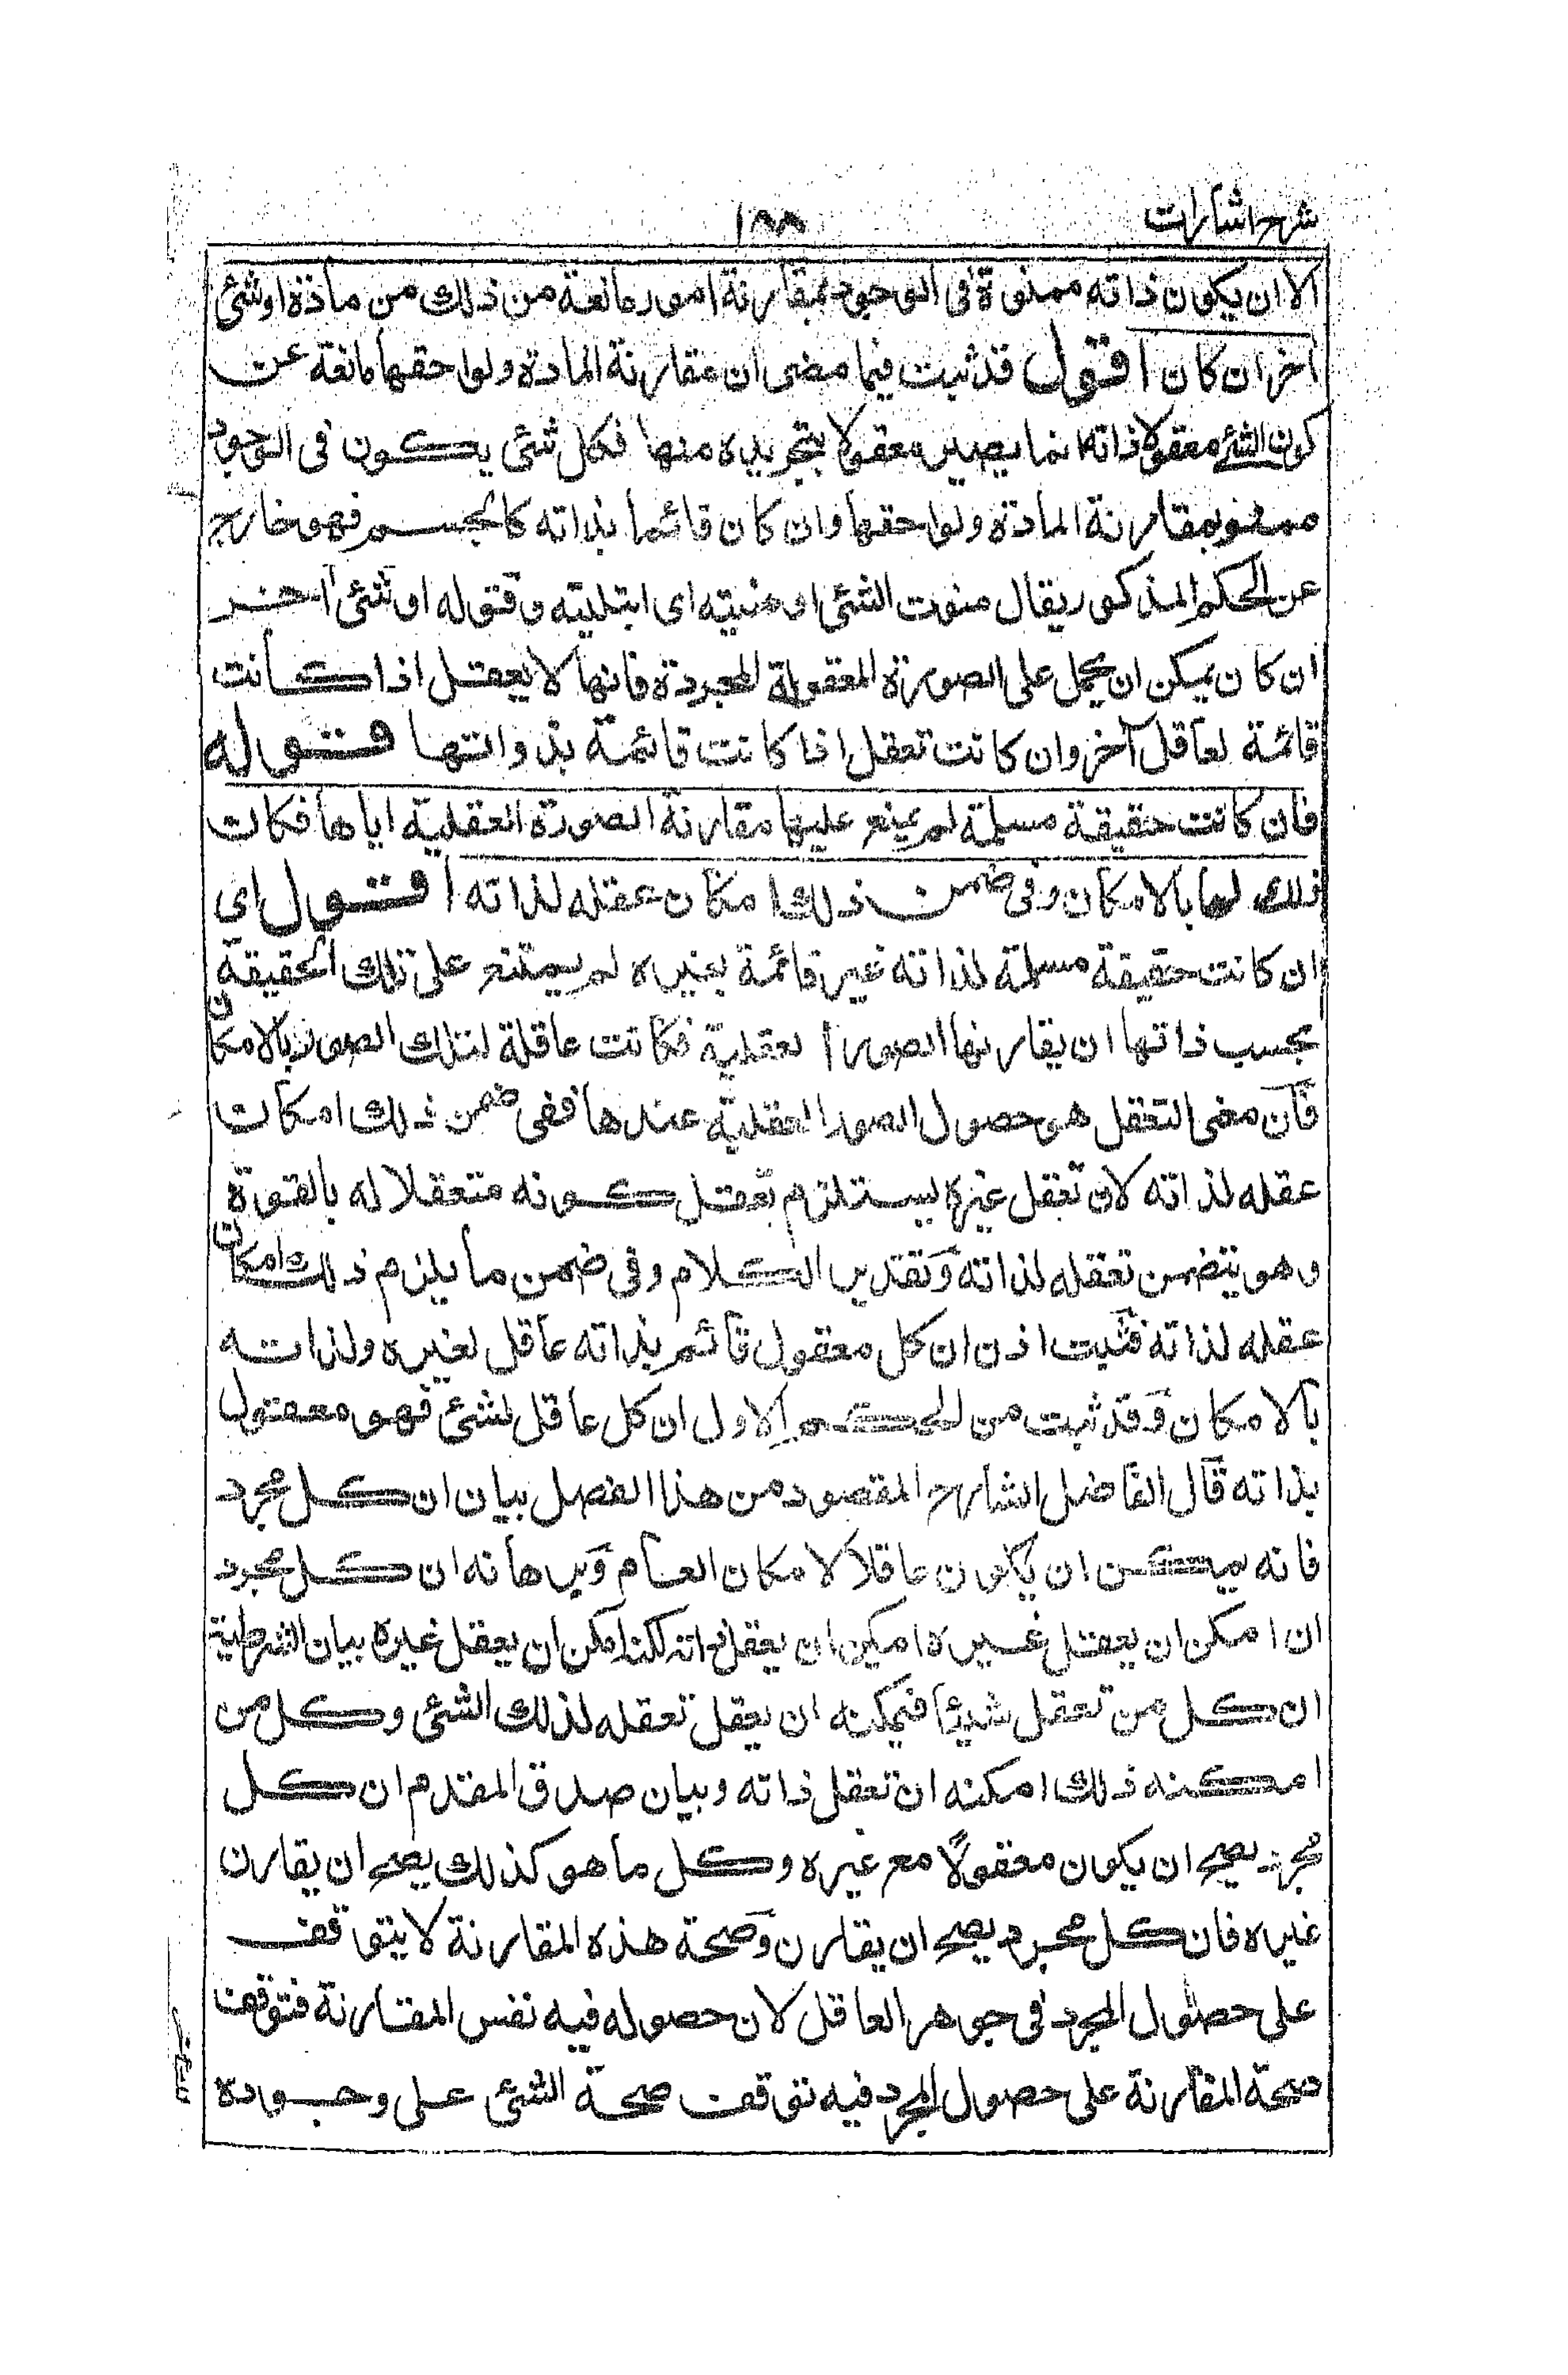 شرح اشارات
١٨٨
الا ان يكون ذاته ممنوة فى الوجود بمقارنة امور مانعة من ذلك من مادة او شئ
آخر ان كان اقول قد ثبت فيما مضى ان مقارنة المادة ولواحقها مانعة عن
كون الشئ معقولا ذاته انما يصير معقولا بتجريده منها فكل شئ يكون فى الوجود
ممنو بمقارنة المادة ولواحقها وان كان قائما بذاته كالجسم فهو خارج
عن الحكم المذكور يقال منوت الشئ او منيته اى ابتليته وقوله او شئ آخر
ان كان يمكن ان يحمل على الصورة المعقولة المجردة فانها لا يعقل اذا كانت
قائمة لعاقل آخر وان كانت تعقل اذا كانت قائمة بذواتها قوله
فان كانت حقيقة مسلمة لم يمنع عليها مقارنة الصورة العقلية اياها فكان
ذلك لها بالامكان وفى ضمن ذلك امكان عقله لذاته اقول اى
ان كانت حقيقة مسلمة لذاته غير قائمة بغيره لم يمتنع على تلك الحقيقة
بحسب ذاتها ان يقارنها الصور العقلية فكانت عاقلة لتلك الصور بالامكان
فان معنى التعقل هو حصول الصور العقلية عندها ففى ضمن ذلك امكان
عقله لذاته لان تعقل غيره يستلزم تعقل كونه متعقلا له بالقوة
وهو يتضمن تعقله لذاته وتقدير الكلام وفى ضمن ما يلزم ذلك امكان
عقله لذاته فثبت اذن ان كل معقول قائم بذاته عاقل لغيره ولذاته
بالامكان وقد ثبت من الحكم الاول ان كل عاقل لشئ فهو معقول
بذاته قال الفاضل الشارح المقصود من هذا الفصل بيان ان كل مجرد
فانه يمكن ان يكون عاقلا لامكان العام وبرهانه ان كل مجرد
ان امكن ان يعقل غيره امكن ان يعقل ذاته لكنه امكن ان يعقل غيره بيان الشرطية
ان كل من تعقل شيئا فيمكنه ان يعقل تعقله لذلك الشئ وكل من
امكنه ذلك امكنه ان تعقل ذاته وبيان صدق المقدم ان كل
مجرد يصح ان يكون معقولا مع غيره وكل ما هو كذلك يصح ان يقارن
غيره فان كل مجرد يصح ان يقارن وصحة هذه المقارنة لا يتوقف
على حصول المجرد فى جوهر العاقل لان حصوله فيه نفس المقارنة فتوقف
صحة المقارنة على حصول المجرد فيه توقف صحة الشئ على وجوده